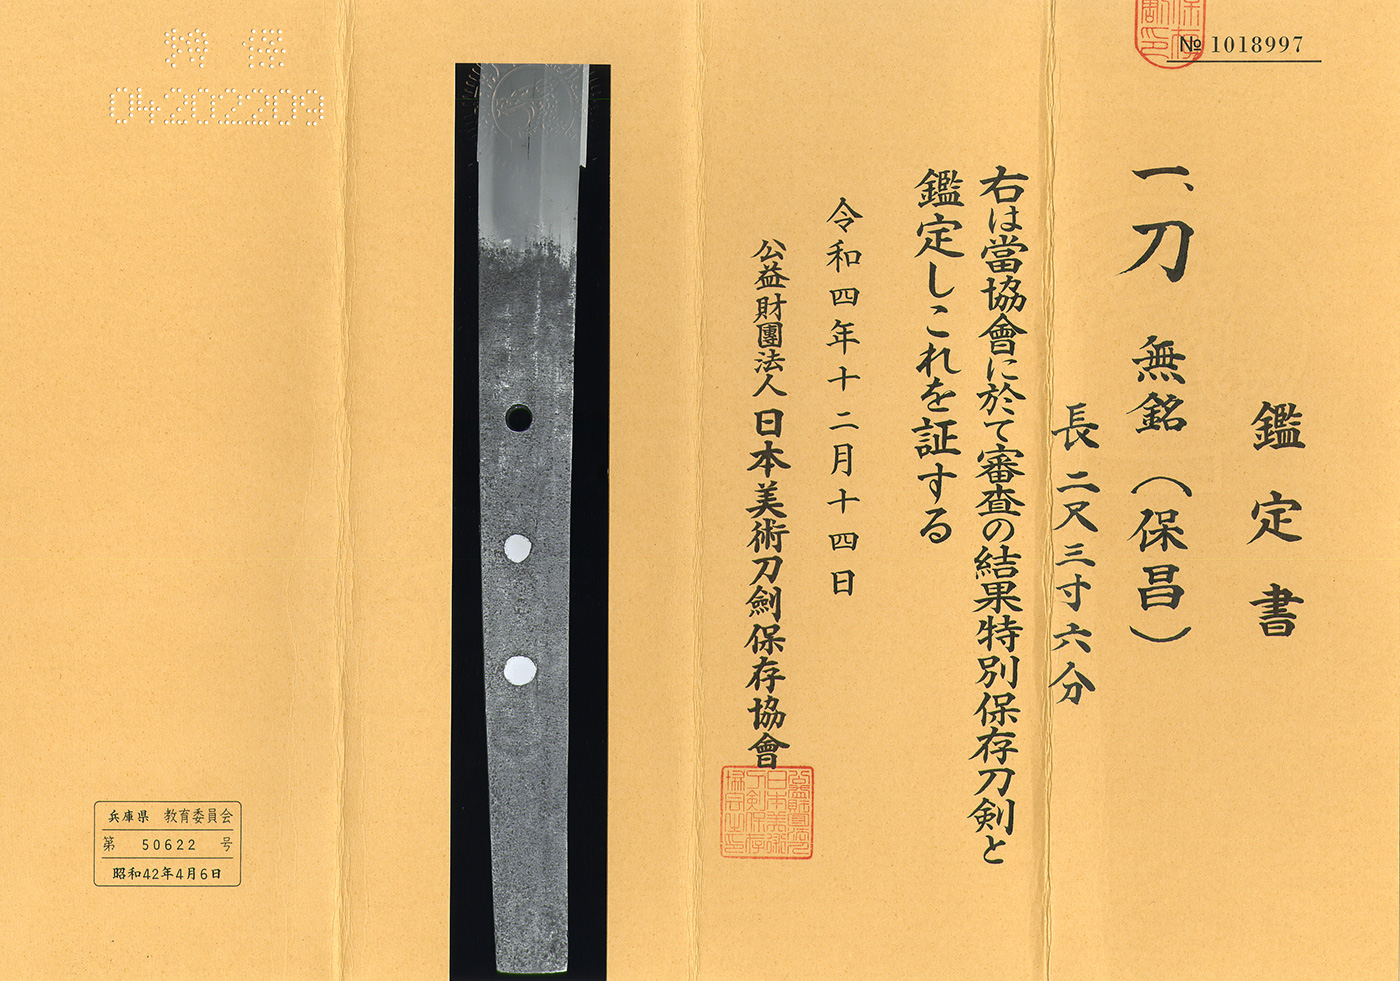 № 1018997
鑑定書
一、刀 無銘(保昌)
長二尺三寸六分
右は當協會に於て審査の結果特別保存刀剣と
鑑定しこれを証する
令和四年十二月十四日
公益財團法人日本美術刀劍保存協會
特保
04202209
兵庫県 教育委員会
第 50622 号
昭和42年4月6日